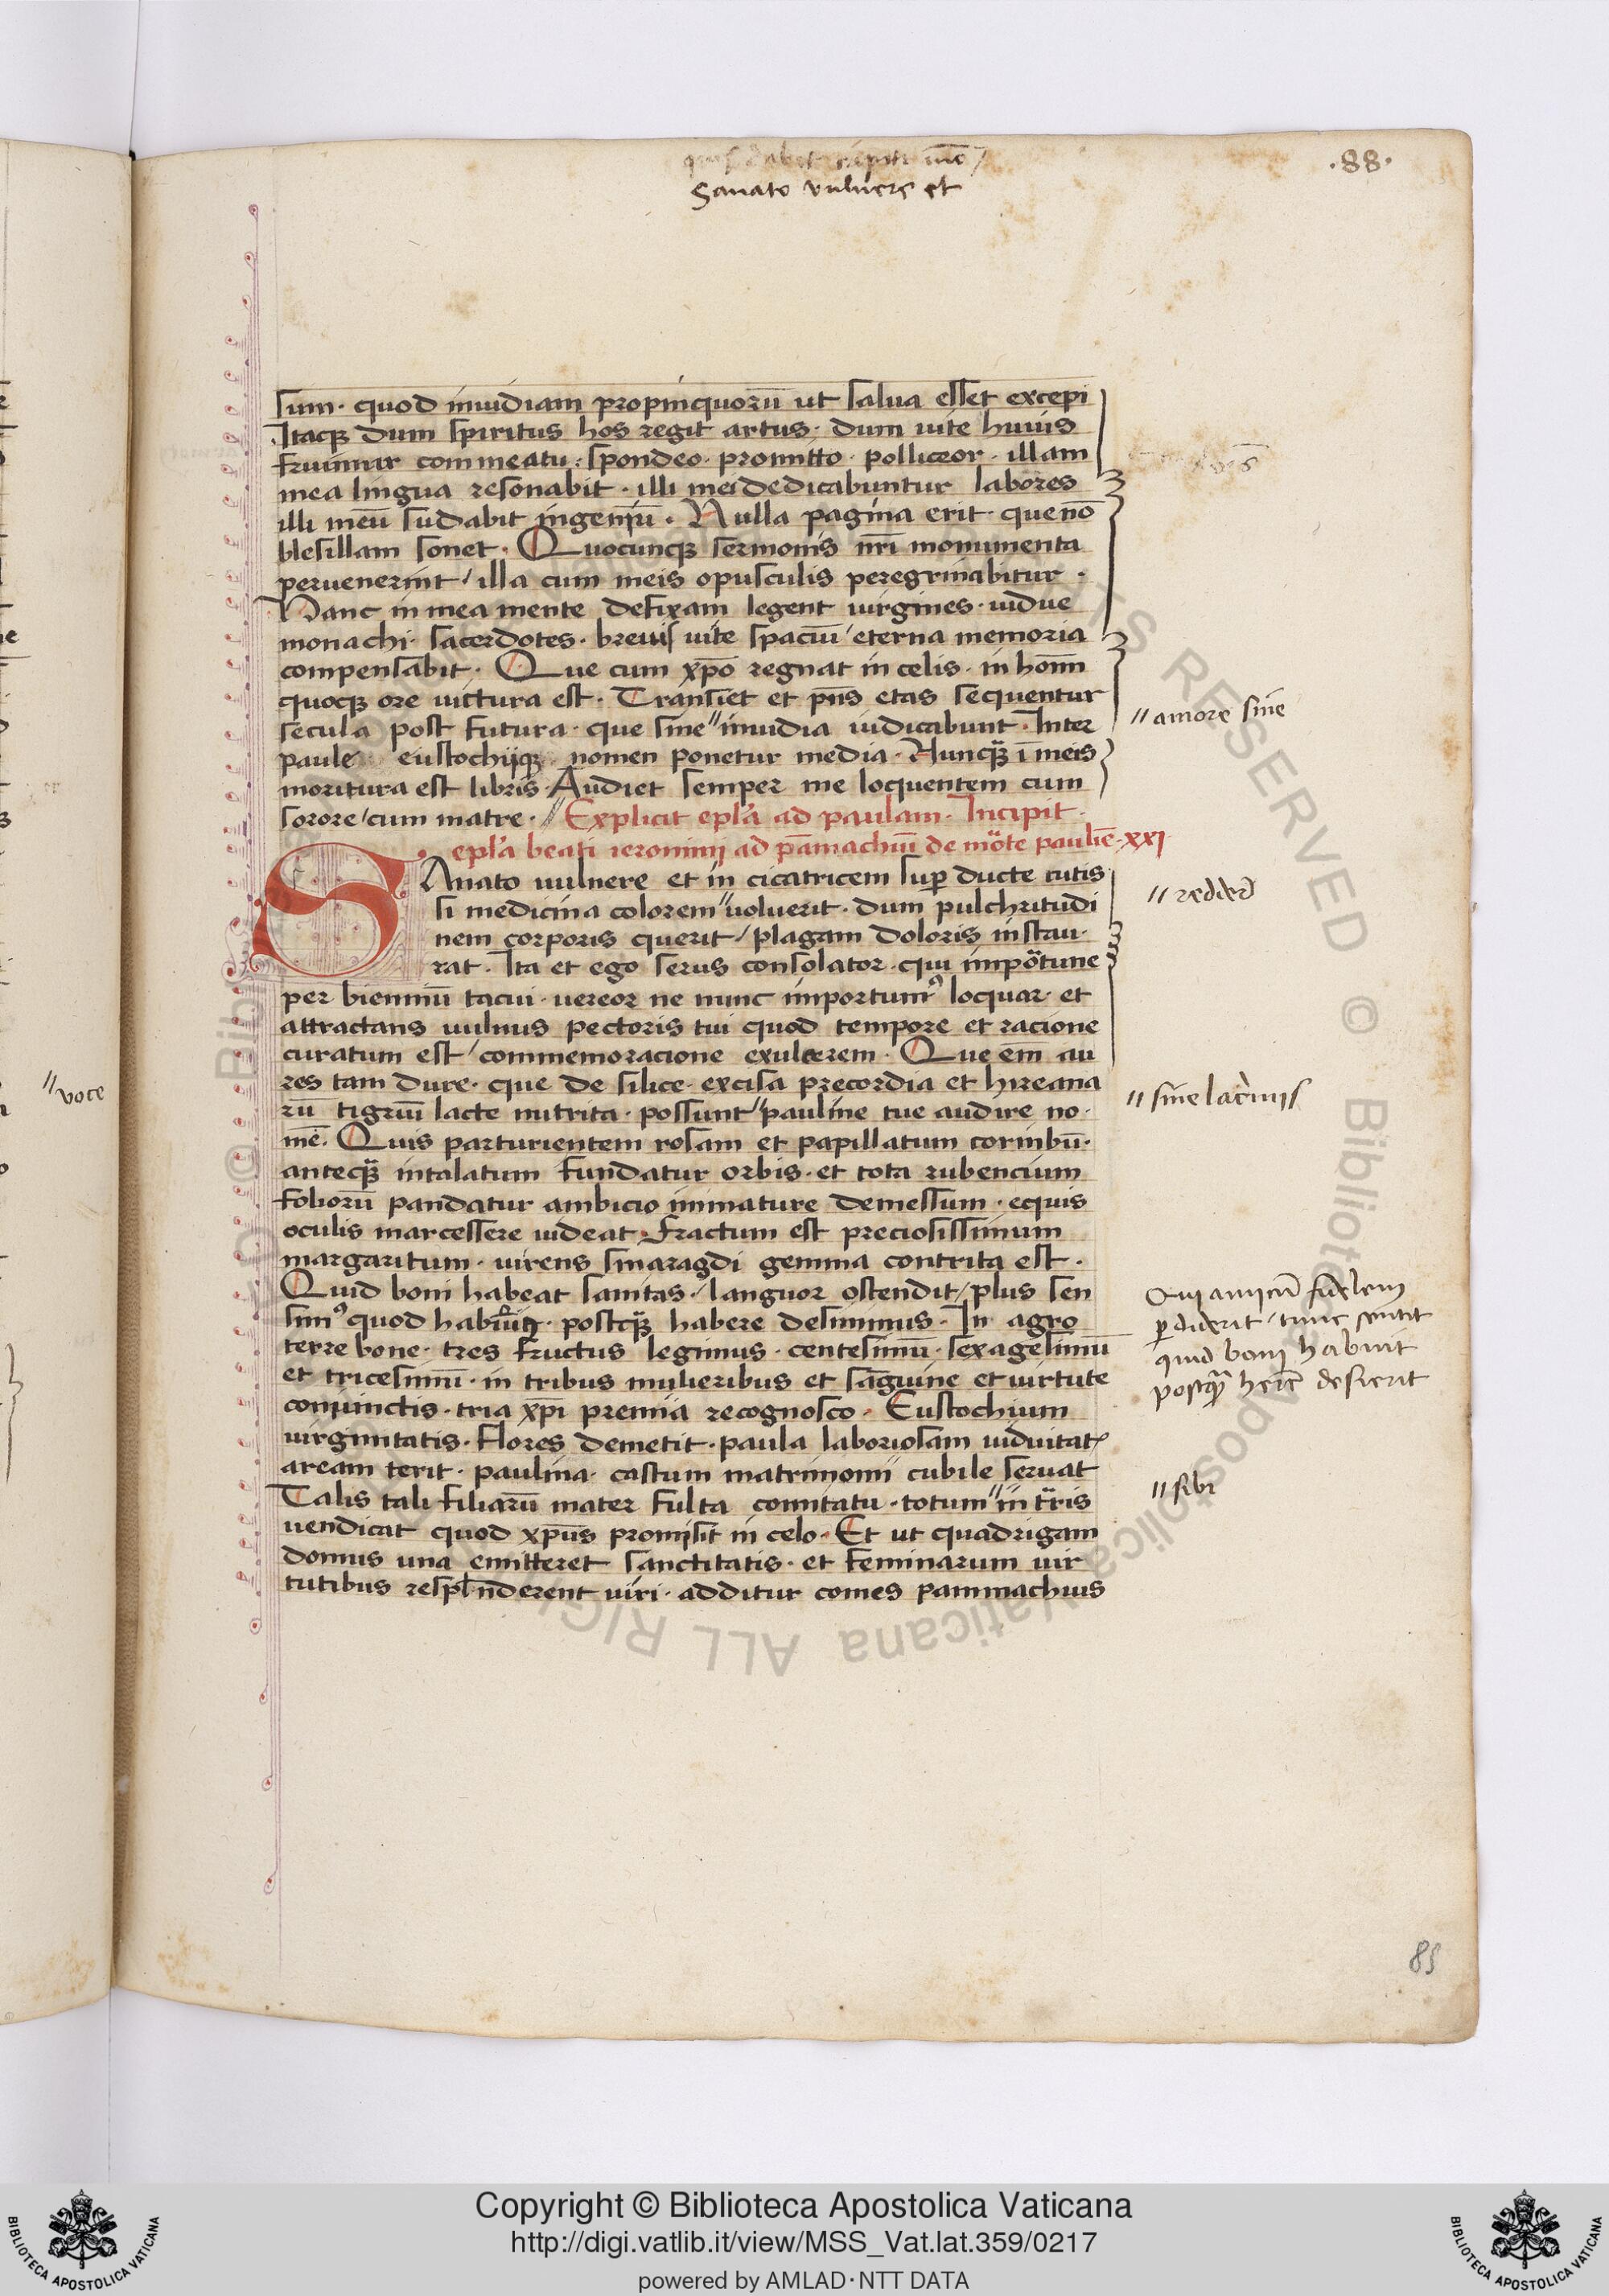 .88.
Sanato vulnere et
sum· quod inuidiam propinquorū ut salua esset excepi
Itacqꝫ dum spiritus hos regit artus· dum uite huius
fruimur commeatu: spondeo· promitto· polliceor· illam
mea lingua resonabit· illi mei dedicabuntur labores
illi meū sudabit ingeniū· Nulla pagina erit que nō
blesillam sonet· Quocuncqꝫ sermonis nr̄i monumenta
peruenerint/ illa cum meis opusculis peregrinabitur·
Hanc in mea mente defixam legent uirgines· uidue
monachi· sacerdotes· breuis uite spaciū/ eterna memoria
compensabit· Que cum xp̄o regnat in celis· in hoīm
quocqꝫ ore uictura est· Transiet et pn̄s etas sequentur
secula post futura· que sine〃inuidia iudicabunt· Inter
paule eustochijqꝫ nomen ponetur media· Nuncqꝫ̄ ī meis
moritura est libris· Audiet semper me loquentem cum
sorore/ cum matre·// Explicit epl̄a ad paulam· Incipit
epl̄a beati ieronimi ad pāmachiū de mōte pauliē· xxi
〃amore sine
SAnato uulnere et in cicatricem suꝑ ducte cutis
si medicina colorem〃uoluerit· dum pulchritudi
nem corporis querit/ plagam doloris instau·
rat· Ita et ego serus consolator· qui impōtune
per bienniū tacui· uereor ne nunc importun9 loquar· et
attractans uulnus pectoris tui quod tempore et racione
curatum est/ commemoracione exulcerem· Que em̄ au
res tam dure· que de silice· excisa precordia et hircana
rū tigriū lacte nutrita· possunt〃pauline tue audire no·
mē· Quis parturientem rosam et papillatum corimbū·
antecqꝫ̄ intalatum fundatur orbis· et tota rubencium
foliorū pandatur ambicio inmature demessum· equis
oculis marcessere uideat· Fractum est preciosissimum
margaritum· uirens smaragdi gemma contrita est·
Quid boni habeat sanitas·/ languor ostendit/ plus sen
sim9 quod habuim9· postcqꝫ̄ habere desinimus· In agro
terre bone· tres fructus legimus· centesimū· sexagesimū
et tricesimū· in tribus mulieribus et sāguine et uirtute
coniunctis· tria xp̄i premia recognosco· Eustochium
uirginitatis· flores demetit· paula laboriosam uiduitat̄
aream terit· paulina· castum matrimonij cubile seruat
Talis tali filiarū mater fulta comitatu· totum〃in tr̄ris
uendicat quod xp̄us promisit in celo· Et ut quadrigam
domus una emitteret sanctitatis· et feminarum uir
tutibus respl̄nderent uiri· additur comes pammachius
〃redder̄
〃voce
〃sine lacrimis
Qui amicū fidelem
ꝑdiderit/ tunc sentit
quid boni habuit
postqꝫ̄ hērē desierit
〃sibi
85
Copyright © Biblioteca Apostolica Vaticana
http://digi.vatlib.it/view/MSS_Vat.lat.359/0217
powered by AMLAD·NTT DATA
BIBLIOTECA APOSTOLICA VATICANA
BIBLIOTECA APOSTOLICA VATICANA